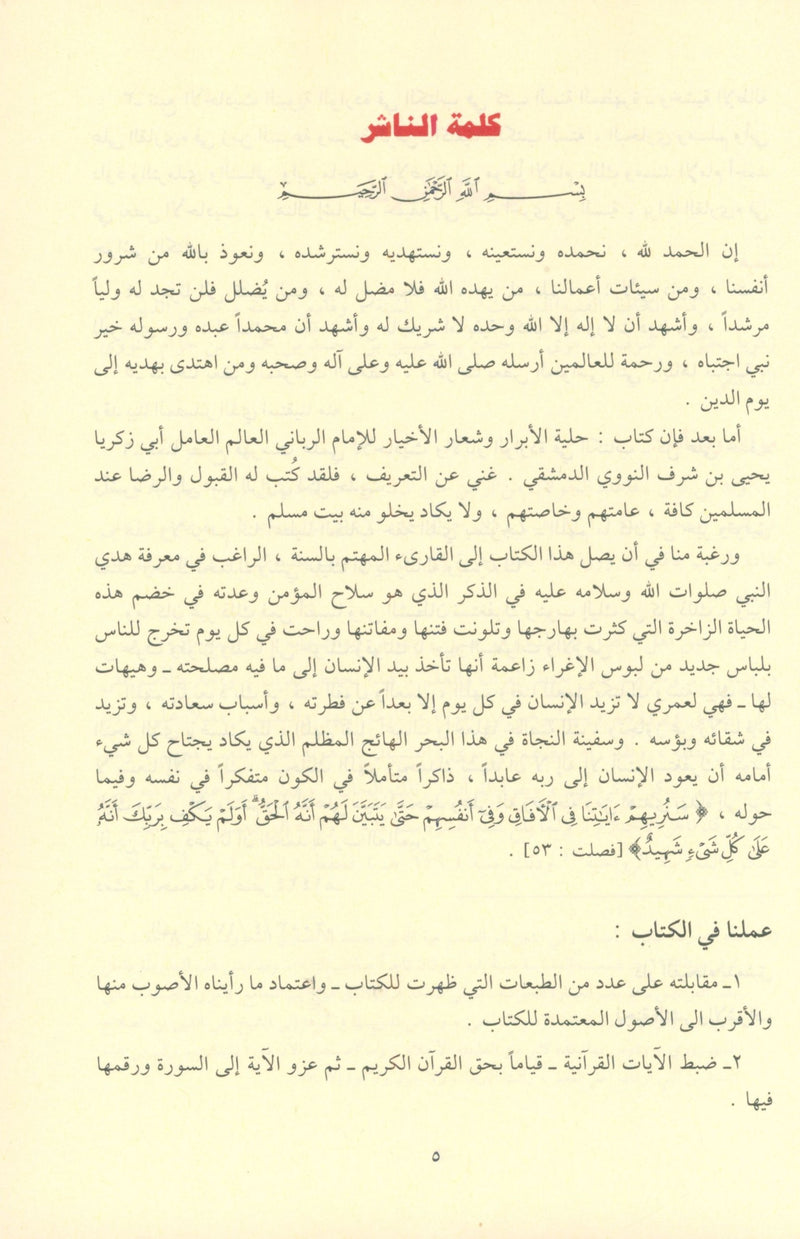 كلمة الناشر
بسم الله الرحمن الرحيم
إن الحمد لله ، نحمده ونستعينه ، ونستهديه ونسترشده ، ونعوذ بالله من شرور
أنفسنا ، ومن سيئات أعمالنا ، من يهده الله فلا مضل له ، ومن يُضلل فلن تجد له ولياً
مرشداً ، وأشهد أن لا إله إلا الله وحده لا شريك له وأشهد أن محمداً عبده ورسوله خير
نبي اجتباه ، ورحمة للعالمين أرسله صلى الله عليه وعلى آله وصحبه ومن اهتدى بهديه إلى
يوم الدين .
أما بعد فإن كتاب : حلية الأبرار وشعار الأخيار للإمام الرباني العالم العامل أبي زكريا
يحيى بن شرف النووي الدمشقي . غني عن التعريف ، فلقد كُتب له القبول والرضا عند
المسلمين كافة ، عامتهم وخاصتهم ، ولا يكاد يخلو منه بيت مسلم .
ورغبة منا في أن يصل هذا الكتاب إلى القارىء المهتم بالسنة ، الراغب في معرفة هدي
النبي صلوات الله وسلامه عليه في الذكر الذي هو سلاح المؤمن وعدته في خضم هذه
الحياة الزاخرة التي كثرت بهارجها وتلونت فتنها ومفاتنها وراحت في كل يوم تخرج للناس
بلباس جديد من لبوس الإغراء زاعمة أنها تأخذ بيد الإنسان إلى ما فيه مصلحته ـ وهيهات
لها ـ فهي لعمري لا تزيد الإنسان في كل يوم إلا بعداً عن فطرته ، وأسباب سعادته ، وتزيد
في شقائه وبؤسه . وسفينة النجاة في هذا البحر الهائج المظلم الذي يكاد يجتاح كل شيء
أمامه أن يعود الإنسان إلى ربه عابداً ، ذاكراً متأملاً في الكون متفكراً في نفسه وفيما
حوله ، ﴿ سَنُرِيهِمْ ءَايَٰتِنَا فِى ٱلْءَافَاقِ وَفِىٓ أَنفُسِهِمْ حَتَّىٰ يَتَبَيَّنَ لَهُمْ أَنَّهُ ٱلْحَقُّ ۗ أَوَلَمْ يَكْفِ بِرَبِّكَ أَنَّهُۥ
عَلَىٰ كُلِّ شَىْءٍ شَهِيدٌ﴾ [فصلت : ٥٣] .
عملنا في الكتاب :
١ـ مقابلته على عدد من الطبعات التي ظهرت للكتاب ـ واعتماد ما رأيناه الأصوب منها
والأقرب الى الأصول المعتمدة للكتاب .
٢ـ ضبط الآيات القرآنية ـ قياماً بحق القرآن الكريم ـ ثم عزو الآية إلى السورة ورقمها
فيها .
٥